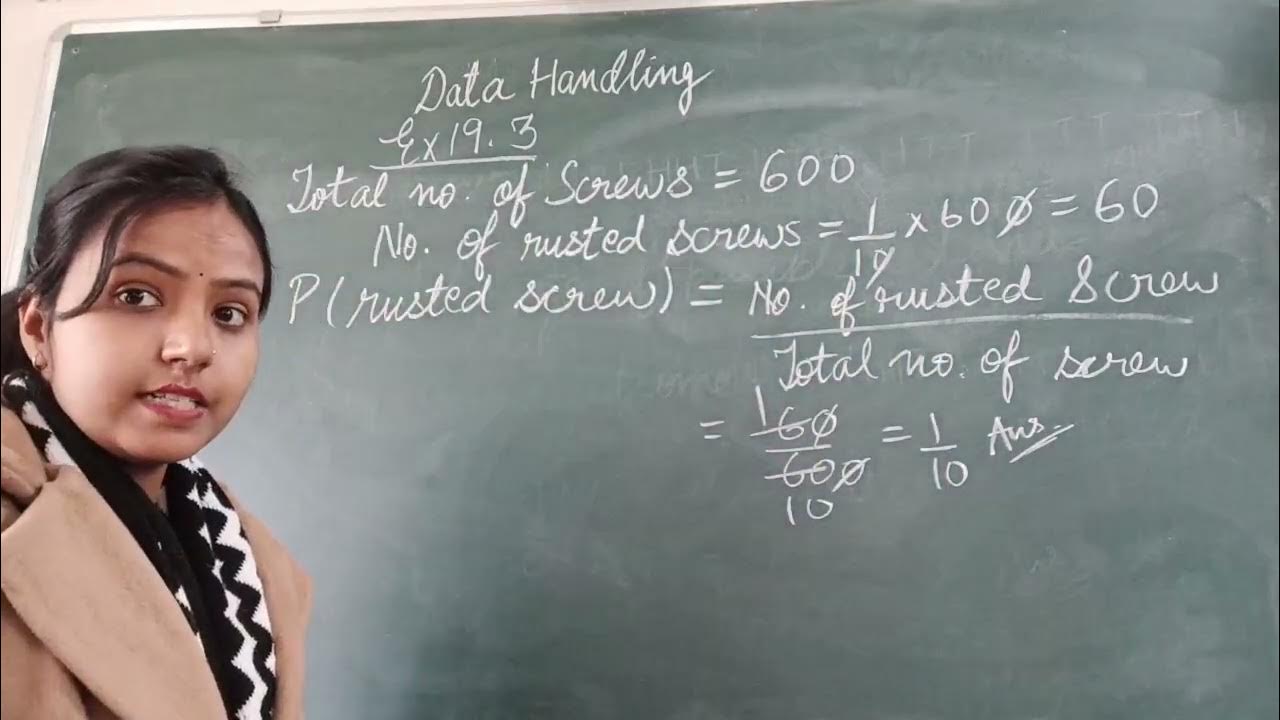 Data Handling
Ex 19.3
Total no. of Screws = 600
No. of rusted screws = 1/10 x 600 = 60
P (rusted screw) = No. of rusted Screw
Total no. of screw
= 1 60/600 10 = 1/10 Ans.